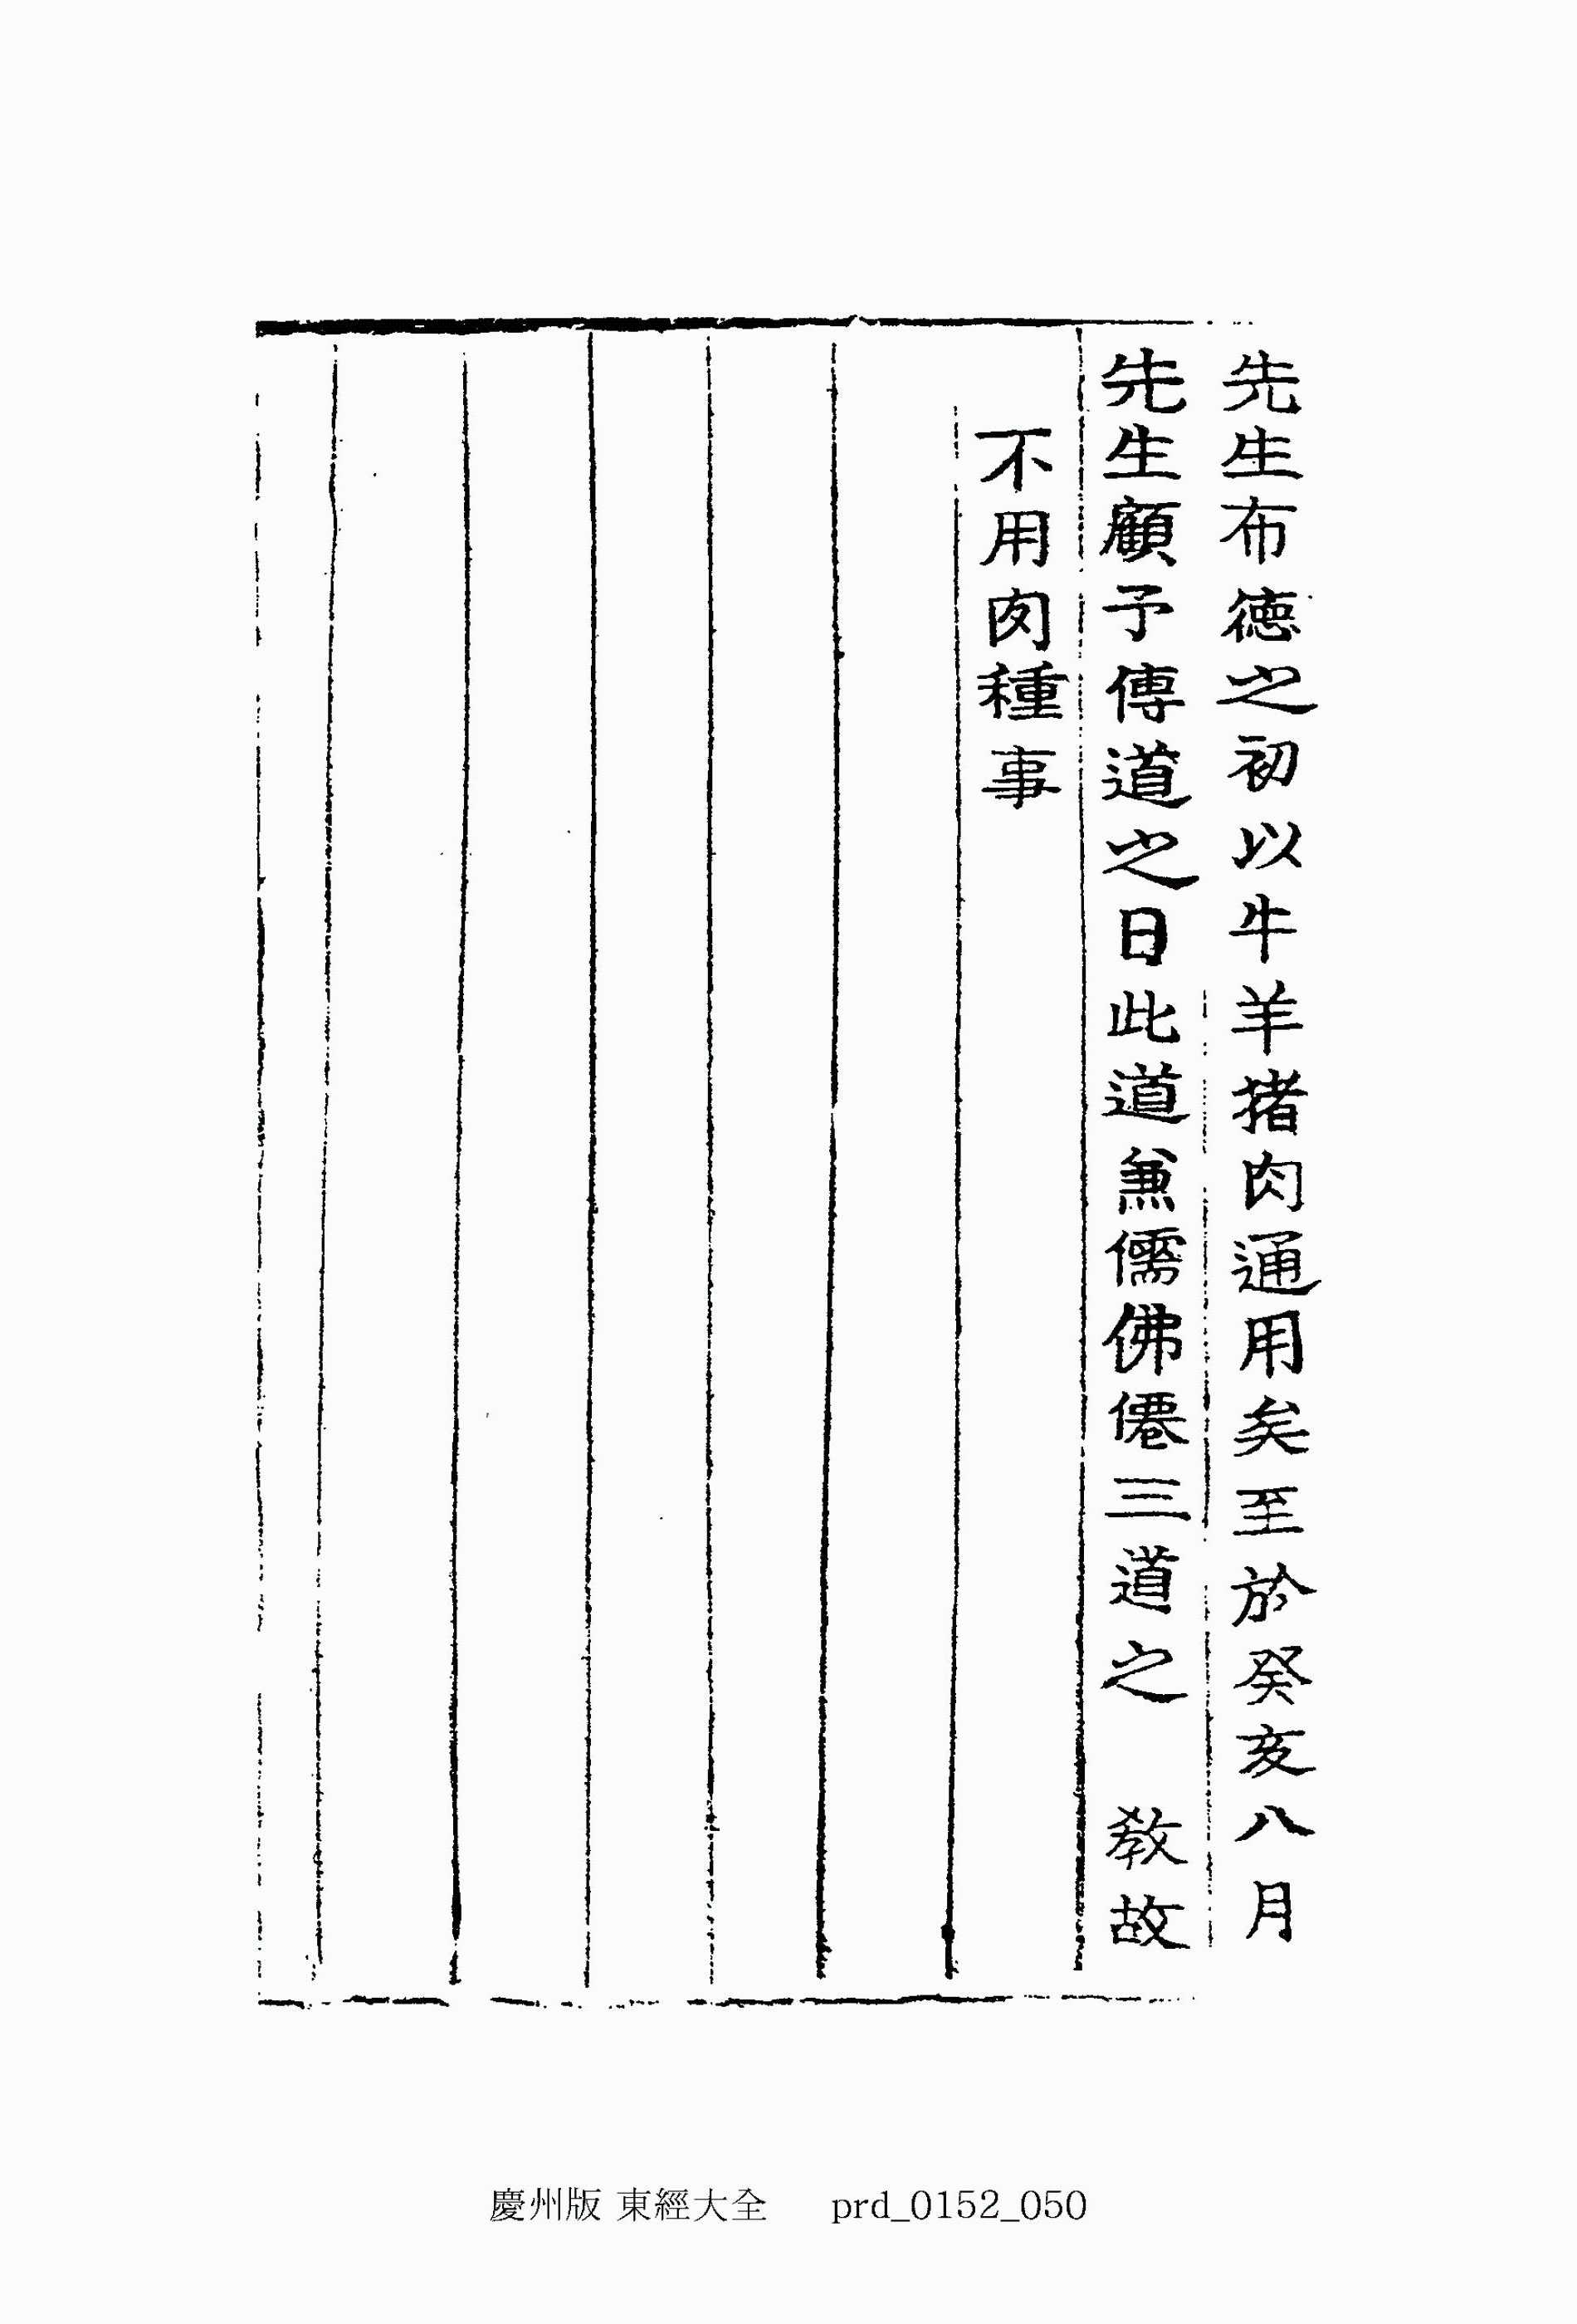 先生布德之初以牛羊猪肉通用矣至於癸亥八月
先生顧予傳道之日此道兼儒佛僊三道之 敎故
不用肉種事
慶州版 東經大全 prd_0152_050